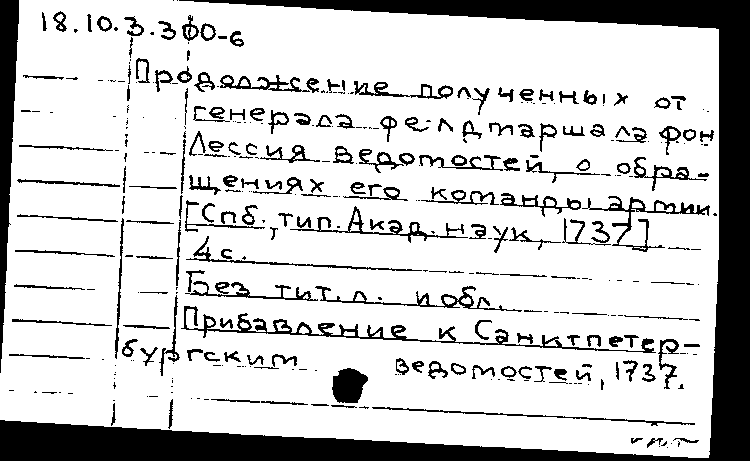 18.10.3.300-б
Продолжение полученных от
генерала фе-лдмаршала фон
Лессия ведомостей, о обра-
щениях его команды армии.
[Спб., тип. Акад. наук, 1737]
4 с.
Без тит. л. и обл.
Прибавление к Санктпетер-
бургским ведомостей, 1737.